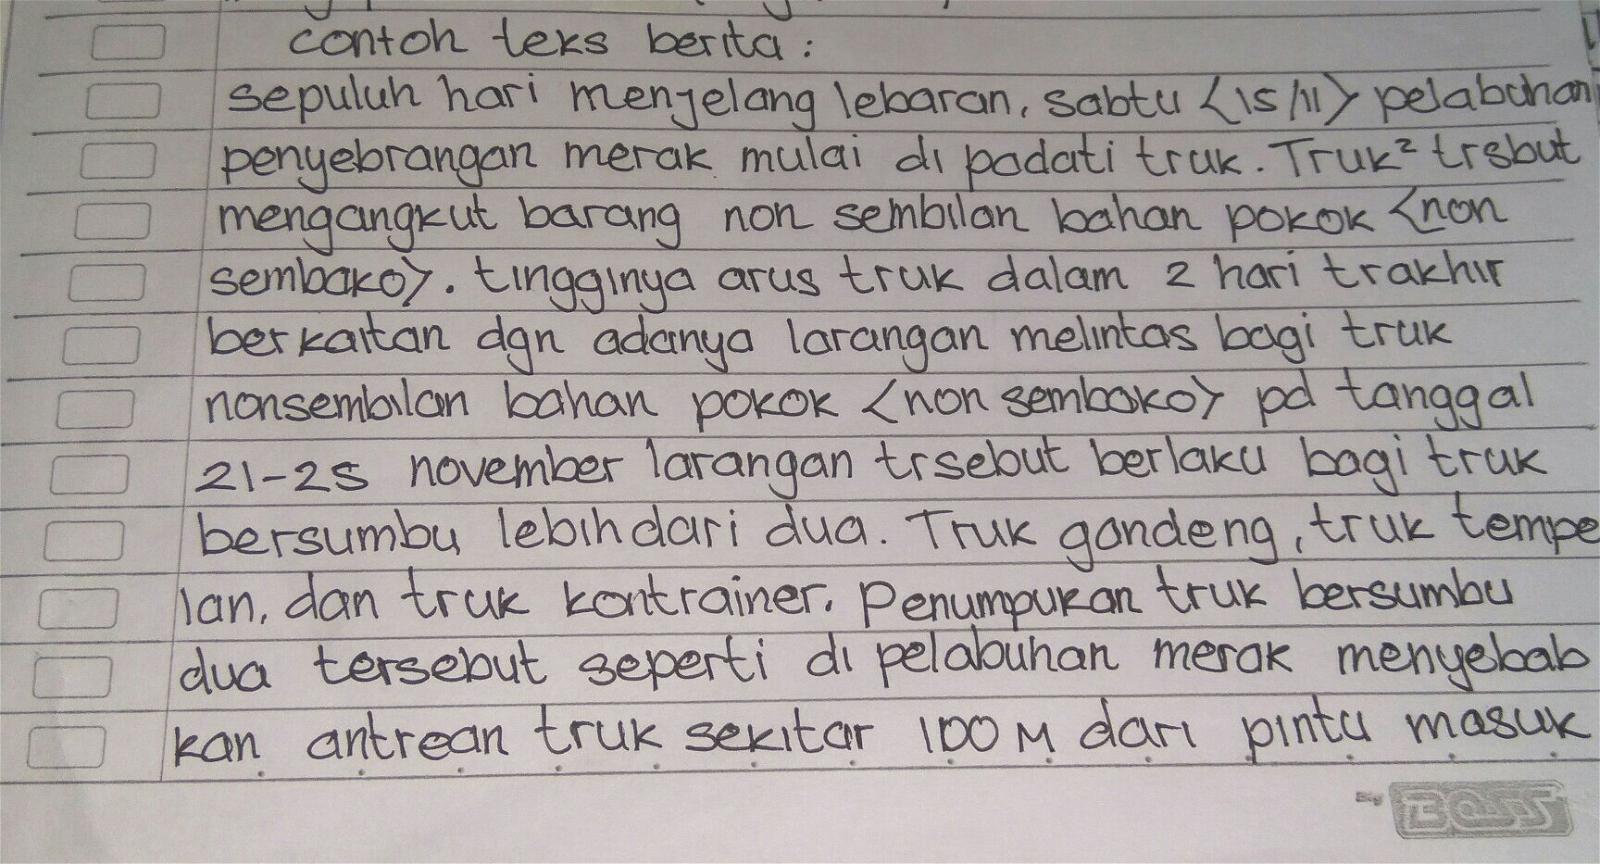 contoh teks berita :
sepuluh hari menjelang lebaran, sabtu <15/11> pelabuhan
penyebrangan merak mulai di padati truk. Truk² trsbut
mengangkut barang non sembilan bahan pokok <non
sembako>. tingginya arus truk dalam 2 hari trakhir
berkaitan dgn adanya larangan melintas bagi truk
nonsembilan bahan pokok <non sembako> pd tanggal
21-25 november larangan trsebut berlaku bagi truk
bersumbu lebih dari dua. Truk gandeng, truk tempe
lan, dan truk kontrainer. Penumpukan truk bersumbu
dua tersebut seperti di pelabuhan merak menyebab
kan antrean truk sekitar 100 M dari pintu masuk
Big BOSS